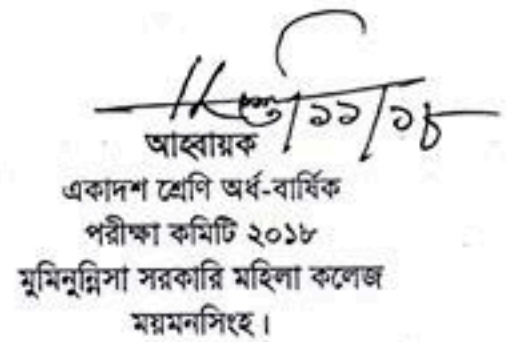 /১১/১৮
আহবায়ক
একাদশ শ্রেণি অর্ধ-বার্ষিক
পরীক্ষা কমিটি ২০১৮
মুমিনুন্নিসা সরকারি মহিলা কলেজ
ময়মনসিংহ।